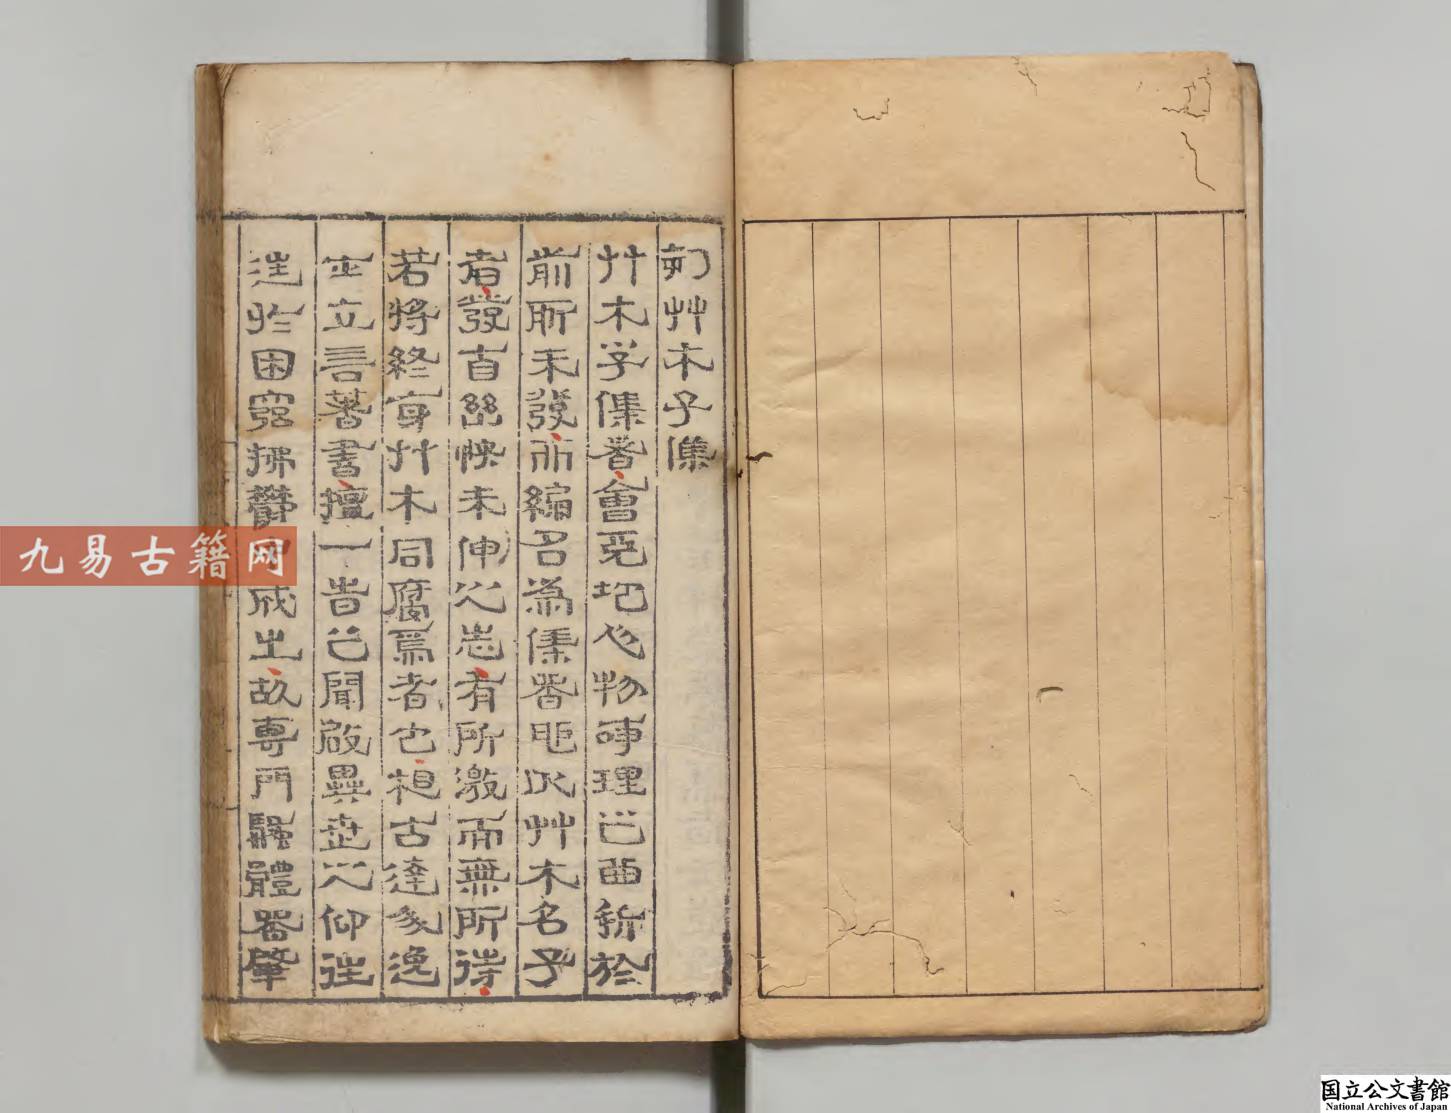 艸木子集
艸木子集者會地人物事理之曲折於
前所未發而編名為集者以艸木名子
者發幽怏未伸之志有所激而無所待
若將終身艸木同腐焉者也想古達逸
士立言著書擅一之聞啟異世之仰往
往於困窮拂鬱中成之故專門騷體器肇
九易古籍网
国立公文書館
National Archives of Japan